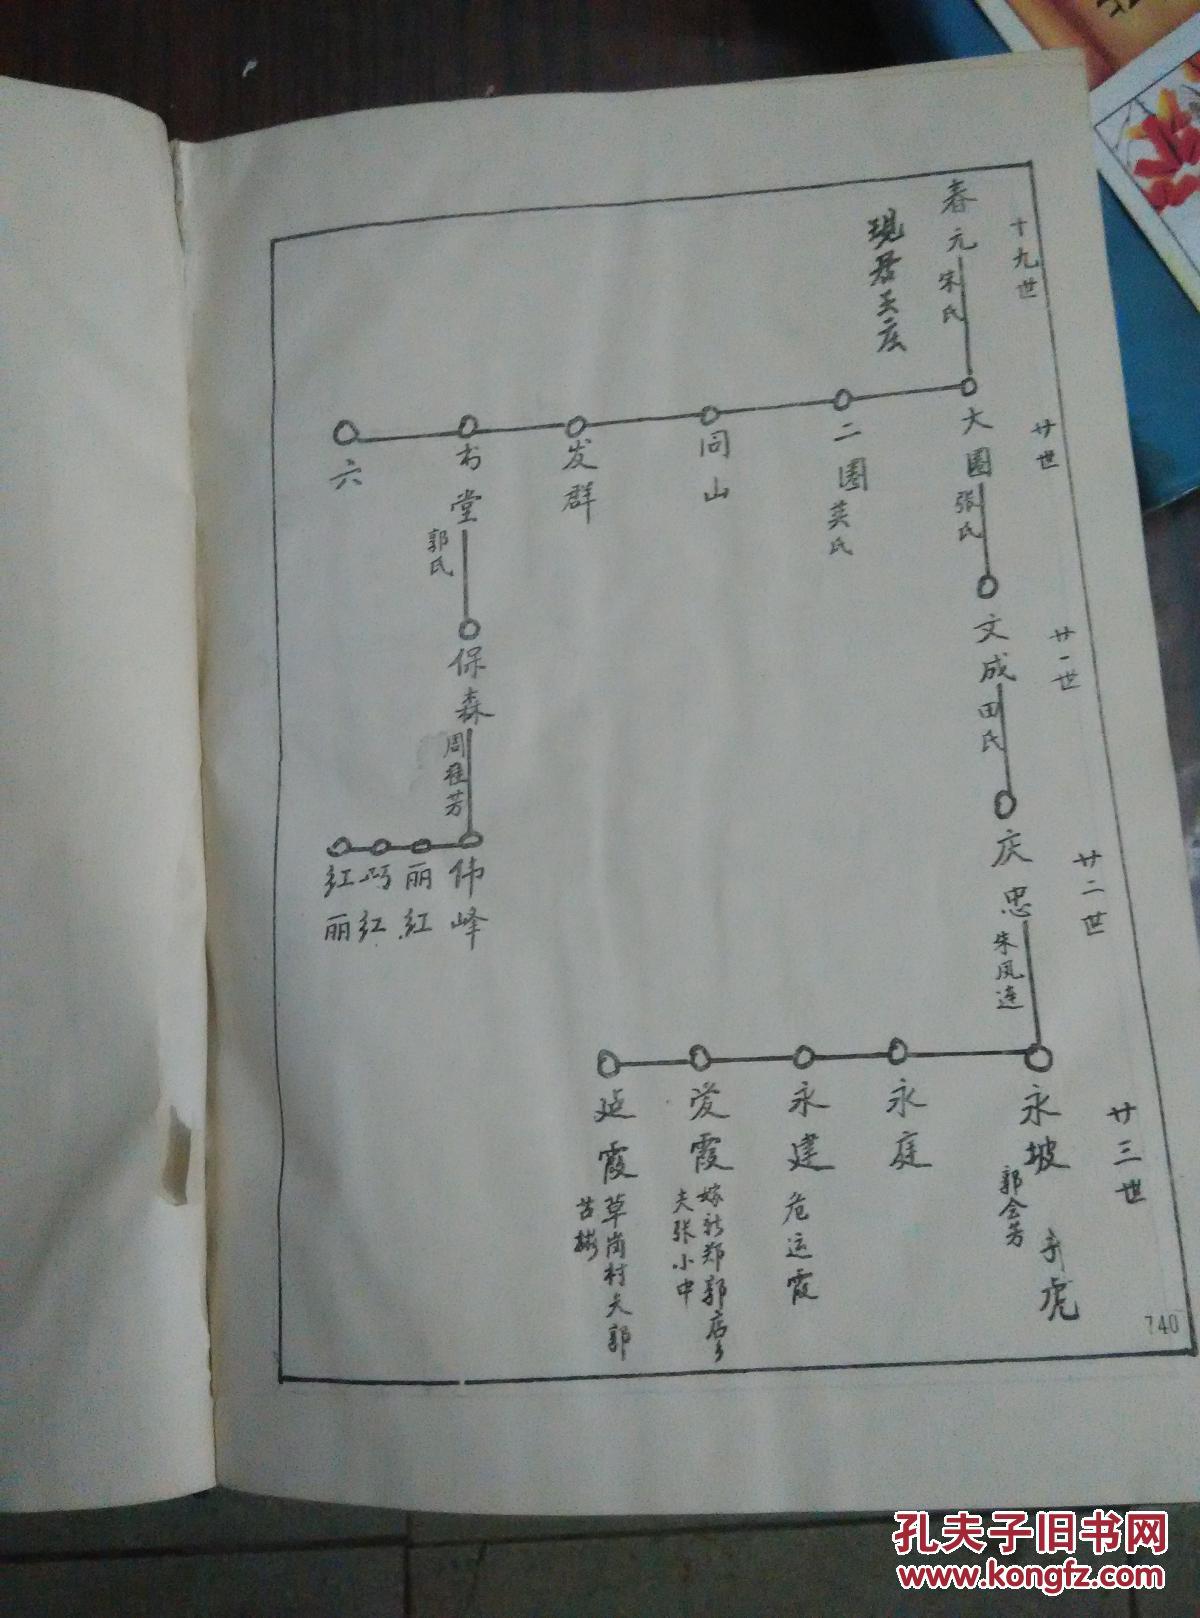 十九世
春元
宋氏
现居王庄
廿世
大圈
張氏
二圈
英氏
同山
发群
书堂
郭氏
六
廿一世
文成
田氏
保森
周桂芳
廿二世
庆忠
朱凤连
伟峰
丽红
巧红
红丽
廿三世
永坡
郭会芳
永庭
永建
危运霞
爱霞
嫁新郑郭店乡
夫张小中
延霞
草岗村夫郭
740
孔夫子旧书网
www.kongfz.com